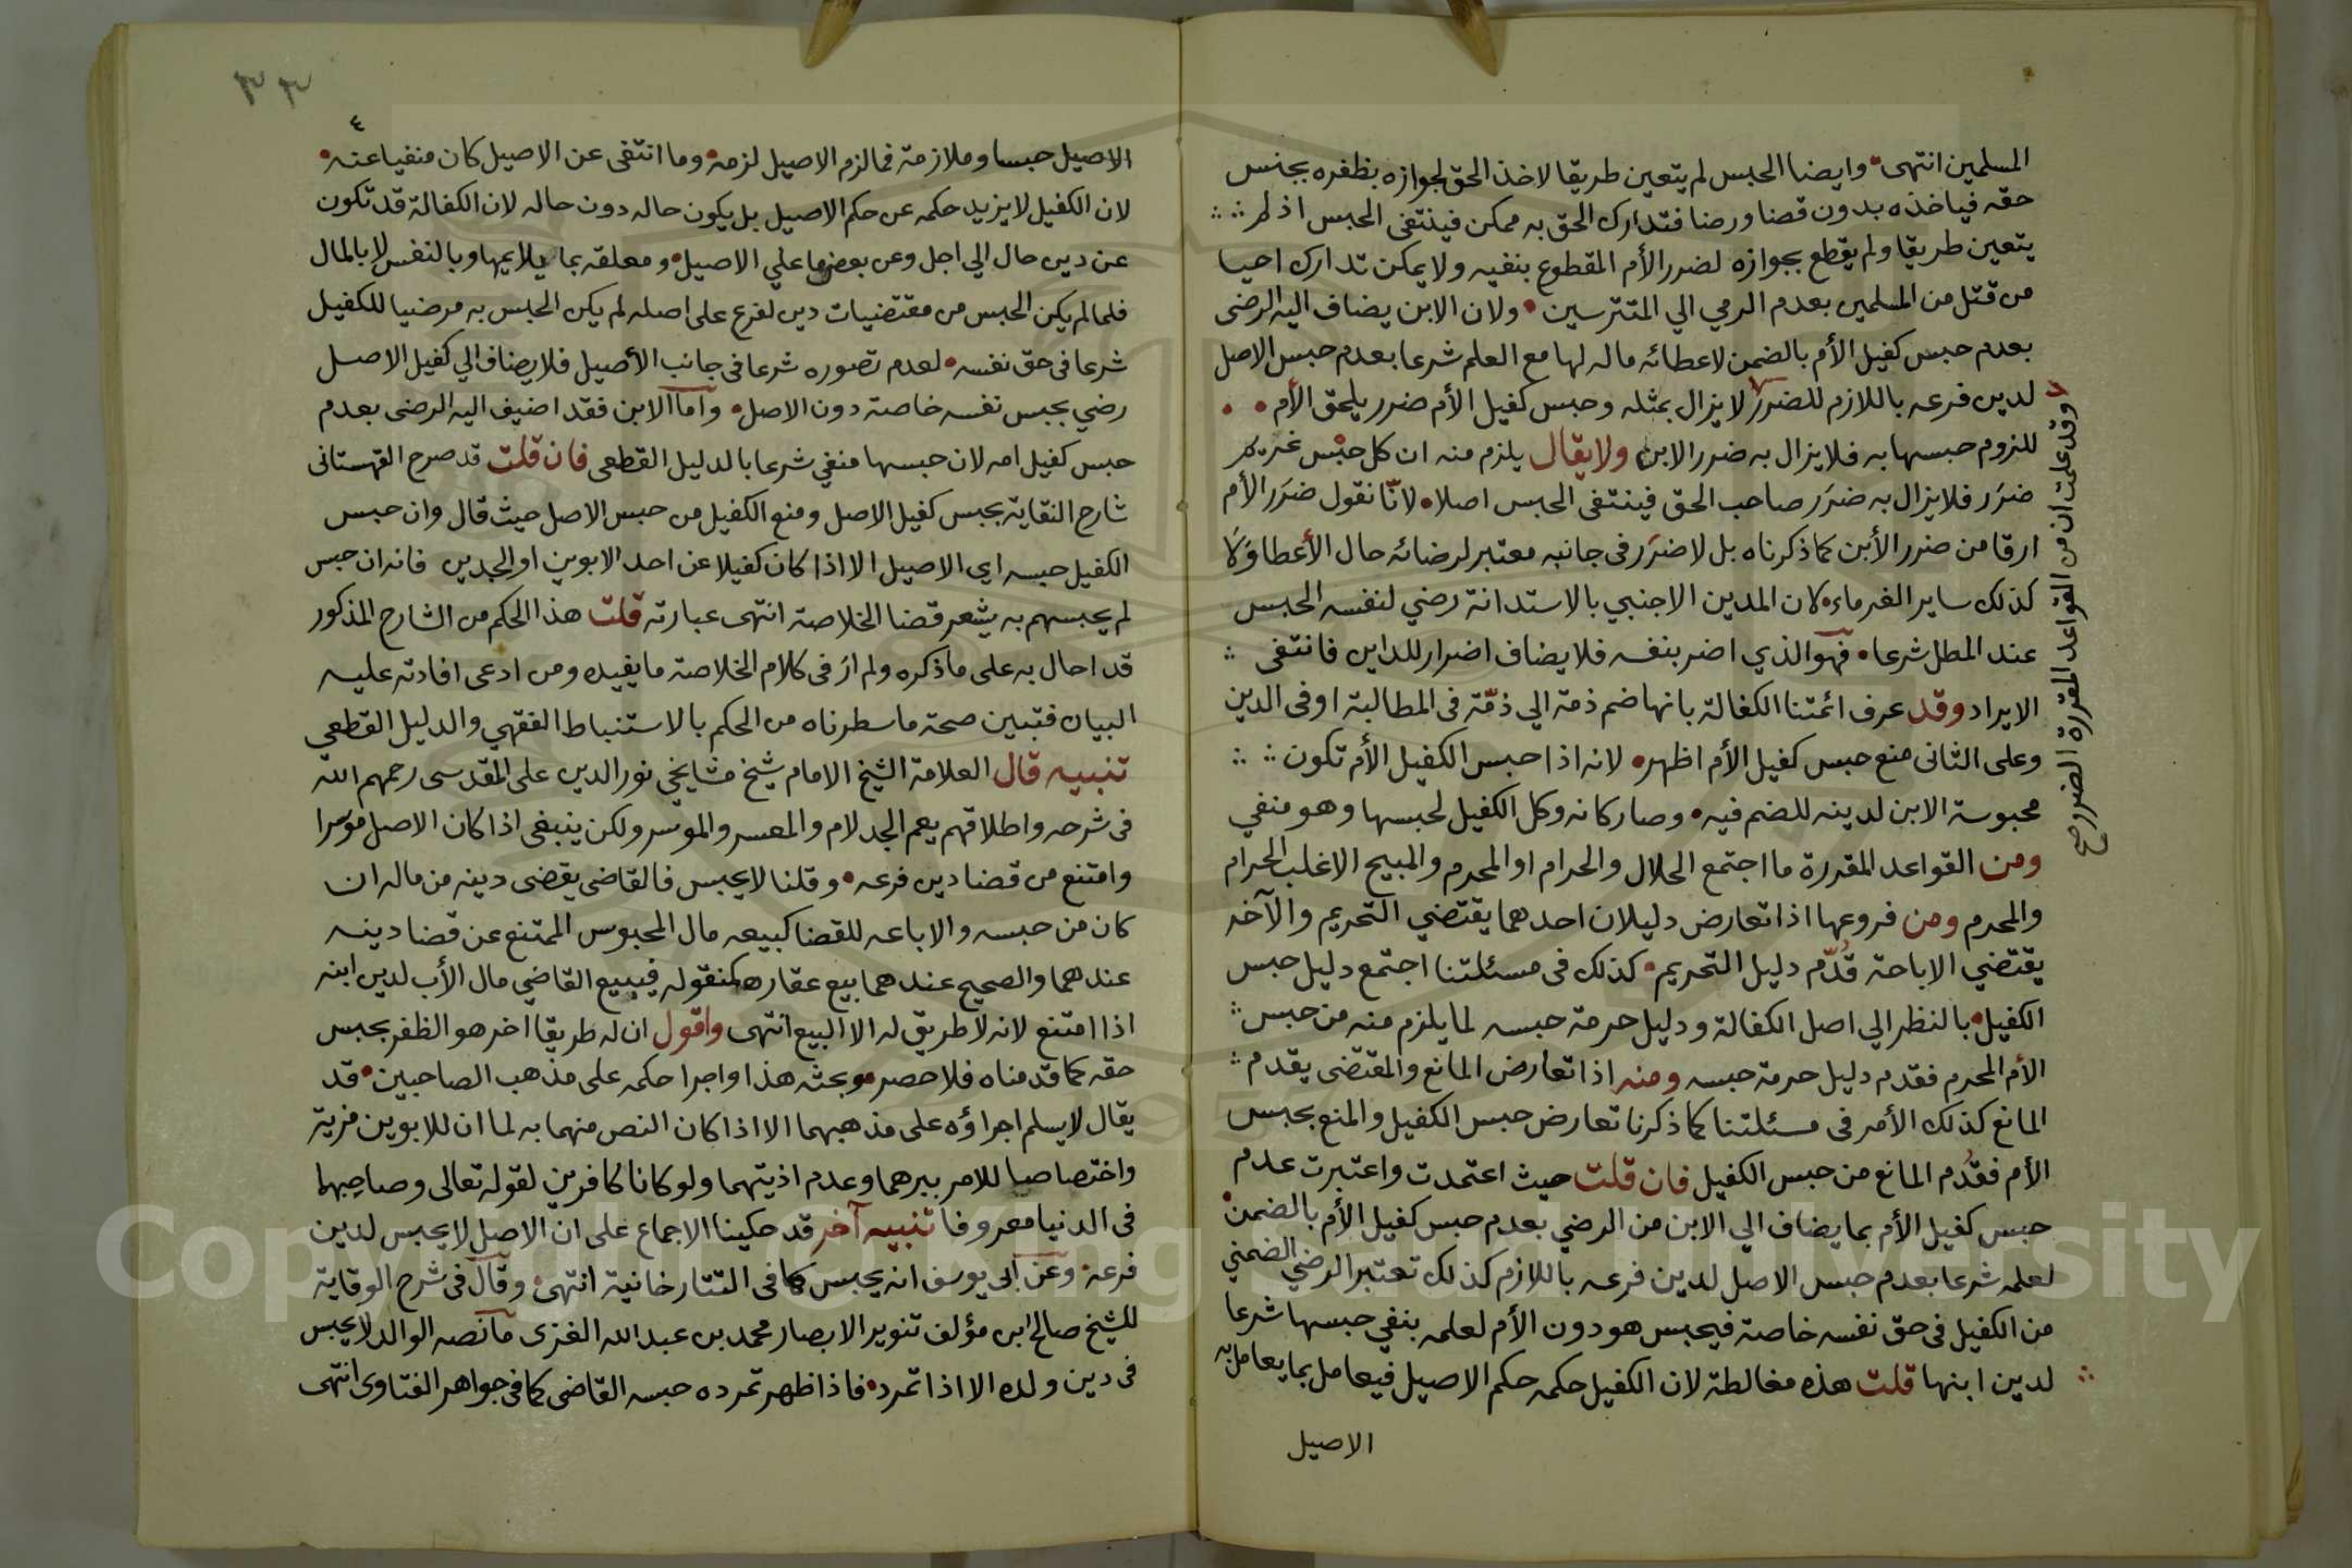 المسلمين انتهى وايضا الحبس لم يتعين طريقا لاخذ الحق لجوازه بظفره بجنس
حقه فياخذه بدون قضا ورضا فتدارك الحق به ممكن فينتفى الحبس اذ لم
يتعين طريقا ولم يقطع بجوازه لضرر الأم المقطوع بنفيه ولا يمكن تدارك احيا
من قتل من المسلمين بعدم الرمي الي المتترسين ولان الابن يضاف اليه الرضى
بعدم حبس كفيل الأم بالضمن لاعطائه ماله لها مع العلم شرعا بعدم حبس الاصل
لدين فرعه باللازم للضرر لا يزال بمثله وحبس كفيل الأم ضرر يلحق الأم
للزوم حبسها به فلا يزال به ضرر الابن ولا يقال يلزم منه ان كل حبس غريم
ضرر فلا يزال به ضرر صاحب الحق فينتفى الحبس اصلا لانا نقول ضرر الأم
ارقا من ضرر الأبن كما ذكرناه بل لا ضرر فى جانبه معتبر لرضائه حال الأعطا ولا
كذلك ساير الغرماء لان المدين الاجنبي بالاستدانة رضي لنفسه الحبس
عند المطل شرعا فهو الذي اضر بنفسه فلا يضاف اضرار للداين فانتفى
الايراد وقد عرف ائمتنا الكفالة بانها ضم ذمة الي ذمة فى المطالبة او فى الدين
وعلى الثانى منع حبس كفيل الأم اظهر لانه اذا حبس الكفيل الأم تكون
محبوسة الابن لدينه للضم فيه وصار كانه وكل الكفيل لحبسها وهو منفي
ومن القواعد المقررة ما اجتمع الحلال والحرام او المحرم والمبيح الا غلب الحرام
والمحرم ومن فروعها اذا تعارض دليلان احدهما يقتضي التحريم والآخر
يقتضي الاباحة قدم دليل التحريم كذلك فى مسئلتنا اجتمع دليل حبس
الكفيل بالنظر الي اصل الكفالة ودليل حرمة حبسه لما يلزم منه من حبس
الأم المحرم فقدم دليل حرمة حبسه ومنه اذا تعارض المانع والمقتضى يقدم
المانع كذلك الأمر فى مسئلتنا كما ذكرنا تعارض حبس الكفيل والمنع بحبس
الأم فقدم المانع من حبس الكفيل فان قلت حيث اعتمدت واعتبرت عدم
حبس كفيل الأم بما يضاف الي الابن من الرضي بعدم حبس كفيل الأم بالضمن
لعلمه شرعا بعدم حبس الاصل لدين فرعه باللازم كذلك تعتبر الرضي الضمني
من الكفيل فى حق نفسه خاصة فيحبس هو دون الأم لعلمه بنفي حبسها شرعا
لدين ابنها قلت هذه مغالطة لان الكفيل حكمه حكم الاصيل فيعامل بما يعامل به
الاصيل
وقد علمت ان من القواعد المقررة الضرر صح
٣٣
٤
الاصيل حبسا وملازمة فما لزم الاصيل لزمه وما انتفى عن الاصيل كان منفيا عنه
لان الكفيل لا يزيد حكمه عن حكم الاصيل بل يكون حاله دون حاله لان الكفالة قد تكون
عن دين حال الي اجل وعن بعض ما علي الاصيل ومعلقه بما يلايمها وبالنفس لا بالمال
فلما لم يكن الحبس من مقتضيات دين لفرع على اصله لم يكن الحبس به مرضيا للكفيل
شرعا فى حق نفسه لعدم تصوره شرعا فى جانب الأصيل فلا يضاف الي كفيل الاصل
رضي بحبس نفسه خاصة دون الاصل واما الابن فقد اضيف اليه الرضى بعدم
حبس كفيل امه لان حبسها منفي شرعا بالدليل القطعى فان قلت قد صرح القهستانى
شارح النقاية بحبس كفيل الاصل ومنع الكفيل من حبس الاصل حيث قال وان حبس
الكفيل حبسه اى الاصيل الا اذا كان كفيلا عن احد الابوين او الجدين فانه ان حبس
لم يحبسهم به يشعر قضا الخلاصة انتهى عبارته قلت هذا الحكم من الشارح المذكور
قد احال به على ما ذكره ولم ار فى كلام الخلاصة ما يفيده ومن ادعى افادته عليه
البيان فتبين صحة ما سطرناه من الحكم بالاستنباط الفقهي والدليل القطعي
تنبيه قال العلامة الشيخ الامام شيخ مشايخي نور الدين على المقدسى رحمهم الله
فى شرحه واطلاقهم يعم الجد لام والمعسر والموسر ولكن ينبغى اذا كان الاصل موسرا
وامتنع من قضا دين فرعه وقلنا لا يحبس فالقاضى يقضى دينه من ماله ان
كان من جنسه والا باعه للقضا كبيعه مال المحبوس الممتنع عن قضا دينه
عندهما والصحيح عندهما بيع عقاره كمنقوله فيبيع القاضي مال الأب لدين ابنه
اذا امتنع لانه لا طريق له الا البيع انتهى واقول ان له طريقا اخر هو الظفر بجنس
حقه كما قدمناه فلا حصر وبحثه هذا واجرا حكمه على مذهب الصاحبين قد
يقال لا يسلم اجراؤه على مذهبهما الا اذا كان النص منهما به لما ان للابوين مزية
واختصاصا للامر ببرهما وعدم اذيتهما ولو كانا كافرين لقوله تعالى وصاحبهما
فى الدنيا معروفا تنبيه آخر قد حكينا الاجماع على ان الاصل لا يحبس لدين
فرعه وعن ابى يوسف انه يحبس كما فى التتارخانية انتهى وقال فى شرح الوقاية
للشيخ صالح ابن مؤلف تنوير الابصار محمد بن عبد الله الغزى ما نصه الوالد لا يحبس
فى دين ولده الا اذا تمرد فاذا ظهر تمرده حبسه القاضى كما فى جواهر الفتاوى انتهى
Copyright © King Saud University